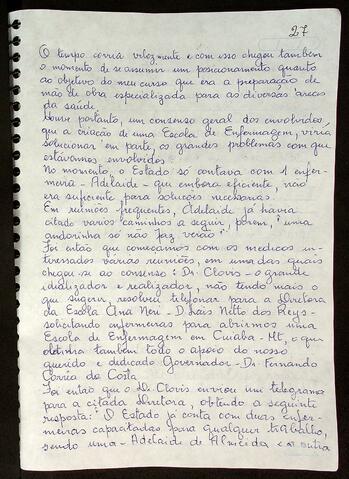 27
O tempo corria velozmente e com isso chegou também
o momento de se assumir um posicionamento quanto
ao objetivo do meu curso que era a preparação de
mão de obra especializada para as diversas áreas
da saúde.
Houve portanto, um consenso geral dos envolvidos,
que a criação de uma Escola de Enfermagem, viria
solucionar em parte, os grandes problemas com que
estavamos envolvidos.
No momento, o Estado só contava com 1 enfer-
meira - Adelaide - que embora eficiente, não
era suficiente para soluções necessárias.
Em reuniões frequentes, Adelaide já havia
citado varios caminhos a seguir, porem, "uma
andorinha só não faz verão".
Foi então que começamos com os medicos in-
teressados varias reuniões, em uma das quais
chegou-se ao consenso: Dr. Clovis - o grande
idializador e realizador, não tendo mais o
que sugerir, resolveu telefonar para a Diretora
da Escola Ana Neri - D. Lais Netto dos Reys -
solicitando enfermeiras para abrirmos uma
Escola de Enfermagem em Cuiabá - Mt, o que
detinha também todo o apoio do nosso
querido e dedicado Governador - Dr. Fernando
Corrêa da Costa.
Foi então que o Dr. Clovis enviou um telegrama
para a citada Diretora, obtendo a seguinte
resposta: "O Estado já conta com duas enfer-
meiras capacitadas para qualquer trabalho,
sendo uma - Adelaide de Almeida e a outra